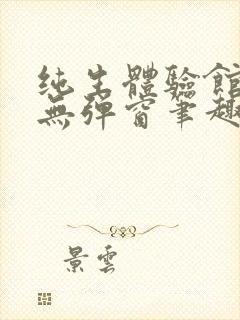 纯生體驗館
無彈窗筆趣
景雲